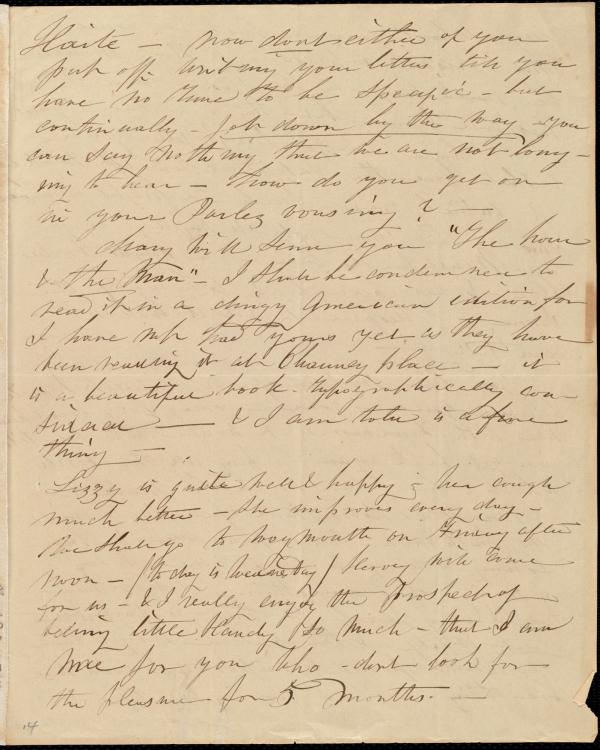 Haite — now dont either of you
put off writing your letters till you
have no time to be specific — but
continually — jot down by the way — you
can say nothing that we are not long-
ing to hear — How do you get on
in your Parlez vousing? —
Mary will send you "The hour
& the Man" — I shall be condemned to
read it in a dingy American edition for
I have not had yours yet as they have
been reading it at Chauncy place — it
is a beautiful book — typographically con
sidered — & I am told is a fine
thing —
Lizzy is quite well & happy; her cough
much better — she improves every day —
We shall go to Weymouth on Friday after
noon — (to day is Wednesday) Hervey will come
for us — & I really enjoy the prospect of
seeing little Handy so much — that I am
for you who — dont look for
the pleasure for 5 months. —
14